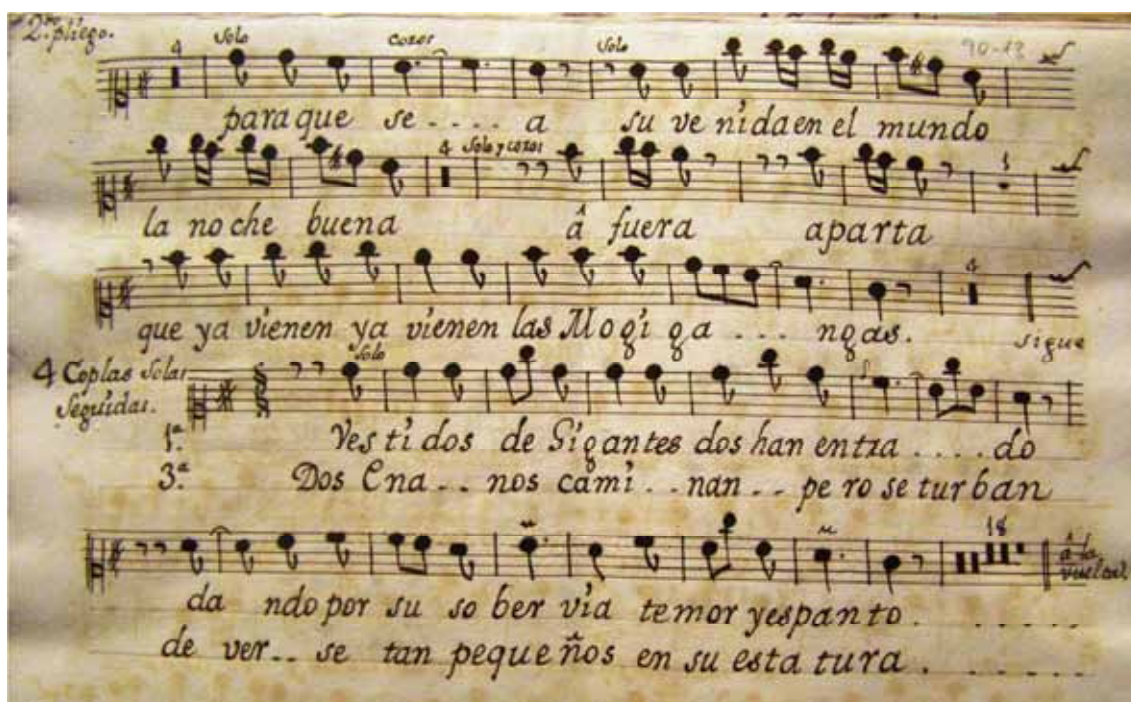 2.do pliego.
4 Solo Coros Solo 90-12
para que se . . . . a su ve nida en el mundo
4 Solo y coros 1
la no che buena â fuera aparta
4
que ya vienen ya vienen las Mogi ga . . . ngas. sigue
4 Coplas Solas Solo
Seguidas.
1.ª Ves ti dos de Gigantes dos han entra . . . . do
3.ª Dos Ena . . nos cami . . nan . . pe ro se tur ban
18 â la
vuelta
da ndo por su so ber via temor y espanto . . . . . .
de ver . . se tan peque ños en su esta tura . . . . . .